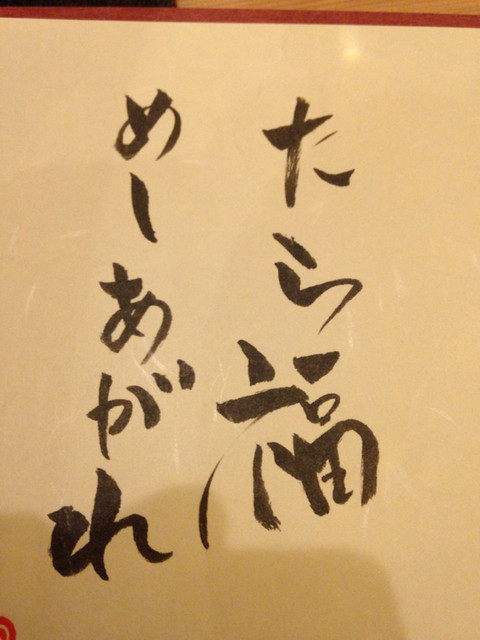 たら福
めしあがれ